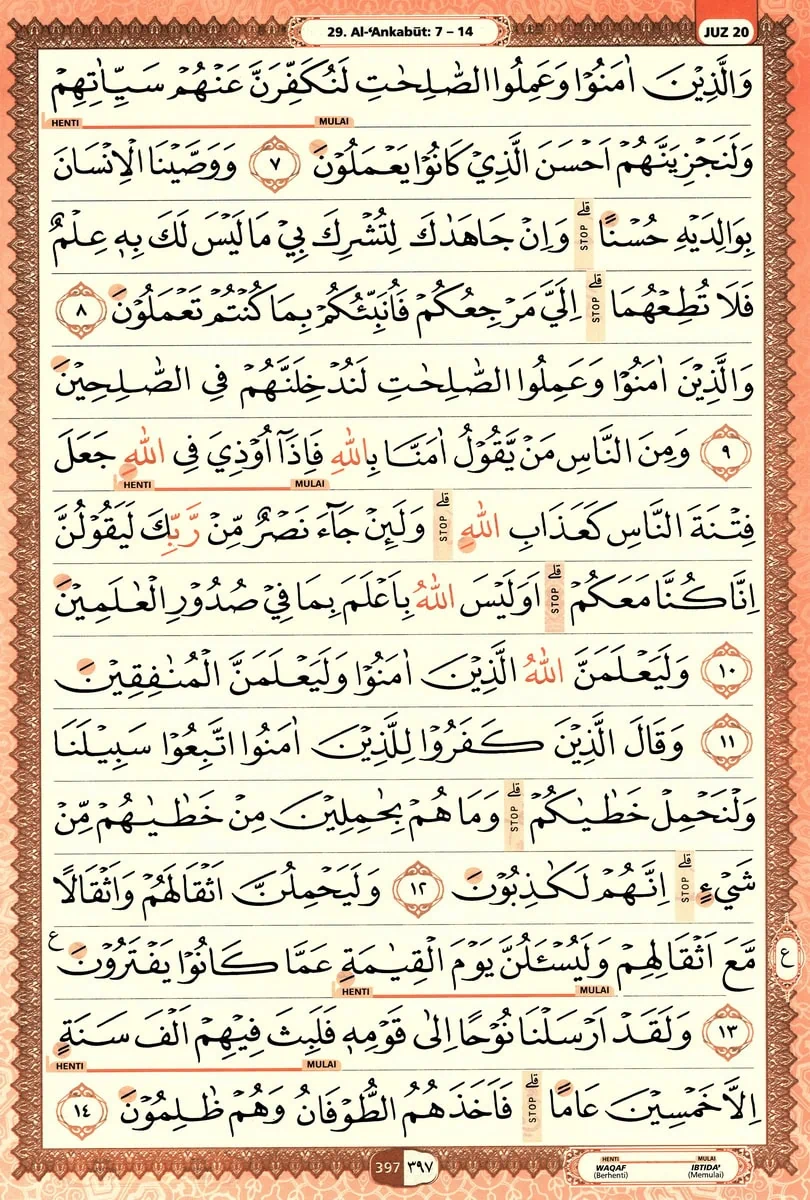 29. Al-‘Ankabūt: 7 – 14
JUZ 20
وَالَّذِيْنَ اٰمَنُوْا وَعَمِلُوا الصّٰلِحٰتِ لَنُكَفِّرَنَّ عَنْهُمْ سَيِّاٰتِهِمْ
HENTI MULAI
وَلَنَجْزِيَنَّهُمْ اَحْسَنَ الَّذِيْ كَانُوْا يَعْمَلُوْنَ ٧ وَوَصَّيْنَا الْاِنْسَانَ
بِوَالِدَيْهِ حُسْنًا ۗ STOP وَاِنْ جَاهَدٰكَ لِتُشْرِكَ بِيْ مَا لَيْسَ لَكَ بِهٖ عِلْمٌ
فَلَا تُطِعْهُمَا ۗ STOP اِلَيَّ مَرْجِعُكُمْ فَاُنَبِّئُكُمْ بِمَا كُنْتُمْ تَعْمَلُوْنَ ٨
وَالَّذِيْنَ اٰمَنُوْا وَعَمِلُوا الصّٰلِحٰتِ لَنُدْخِلَنَّهُمْ فِى الصّٰلِحِيْنَ
٩ وَمِنَ النَّاسِ مَنْ يَّقُوْلُ اٰمَنَّا بِاللّٰهِ فَاِذَآ اُوْذِيَ فِى اللّٰهِ جَعَلَ
HENTI MULAI
فِتْنَةَ النَّاسِ كَعَذَابِ اللّٰهِ ۗ STOP وَلَىِٕنْ جَاۤءَ نَصْرٌ مِّنْ رَّبِّكَ لَيَقُوْلُنَّ
اِنَّا كُنَّا مَعَكُمْ ۗ STOP اَوَلَيْسَ اللّٰهُ بِاَعْلَمَ بِمَا فِيْ صُدُوْرِ الْعٰلَمِيْنَ
١٠ وَلَيَعْلَمَنَّ اللّٰهُ الَّذِيْنَ اٰمَنُوْا وَلَيَعْلَمَنَّ الْمُنٰفِقِيْنَ
١١ وَقَالَ الَّذِيْنَ كَفَرُوْا لِلَّذِيْنَ اٰمَنُوا اتَّبِعُوْا سَبِيْلَنَا
وَلْنَحْمِلْ خَطٰيٰكُمْ ۗ STOP وَمَا هُمْ بِحٰمِلِيْنَ مِنْ خَطٰيٰهُمْ مِّنْ
شَيْءٍ ۗ STOP اِنَّهُمْ لَكٰذِبُوْنَ ١٢ وَلَيَحْمِلُنَّ اَثْقَالَهُمْ وَاَثْقَالًا
مَّعَ اَثْقَالِهِمْ وَلَيُسْـَٔلُنَّ يَوْمَ الْقِيٰمَةِ عَمَّا كَانُوْا يَفْتَرُوْنَ ع
ع
HENTI MULAI
١٣ وَلَقَدْ اَرْسَلْنَا نُوْحًا اِلٰى قَوْمِهٖ فَلَبِثَ فِيْهِمْ اَلْفَ سَنَةٍ
HENTI MULAI
اِلَّا خَمْسِيْنَ عَامًا ۗ STOP فَاَخَذَهُمُ الطُّوْفَانُ وَهُمْ ظٰلِمُوْنَ ١٤
397 ٣٩٧
HENTI MULAI
WAQAF IBTIDA'
(Berhenti) (Memulai)